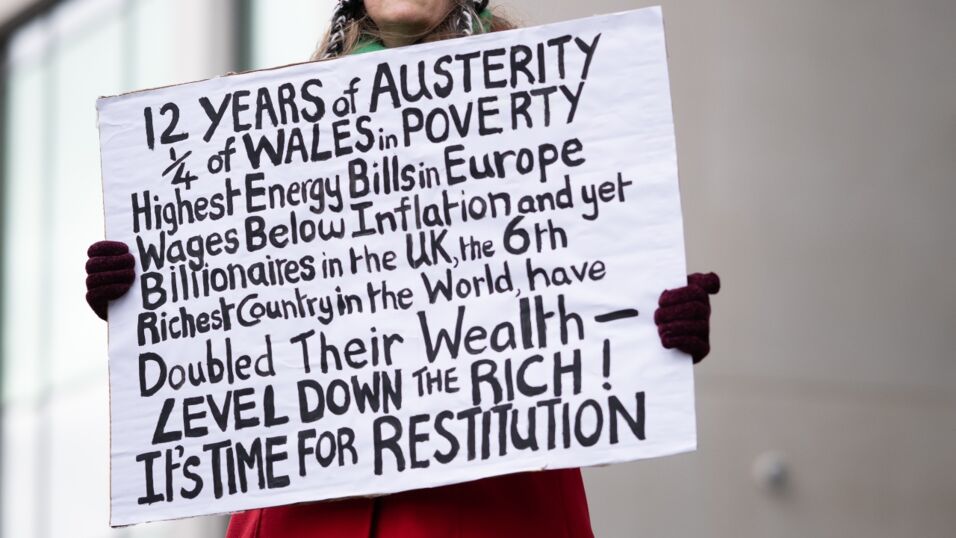 12 YEARS of AUSTERITY
1/4 of WALES in POVERTY
Highest Energy Bills in Europe
Wages Below Inflation and yet
Billionaires in the UK, the 6th
Richest Country in the World, have
Doubled Their Wealth —
LEVEL DOWN THE RICH!
IT'S TIME FOR RESTITUTION